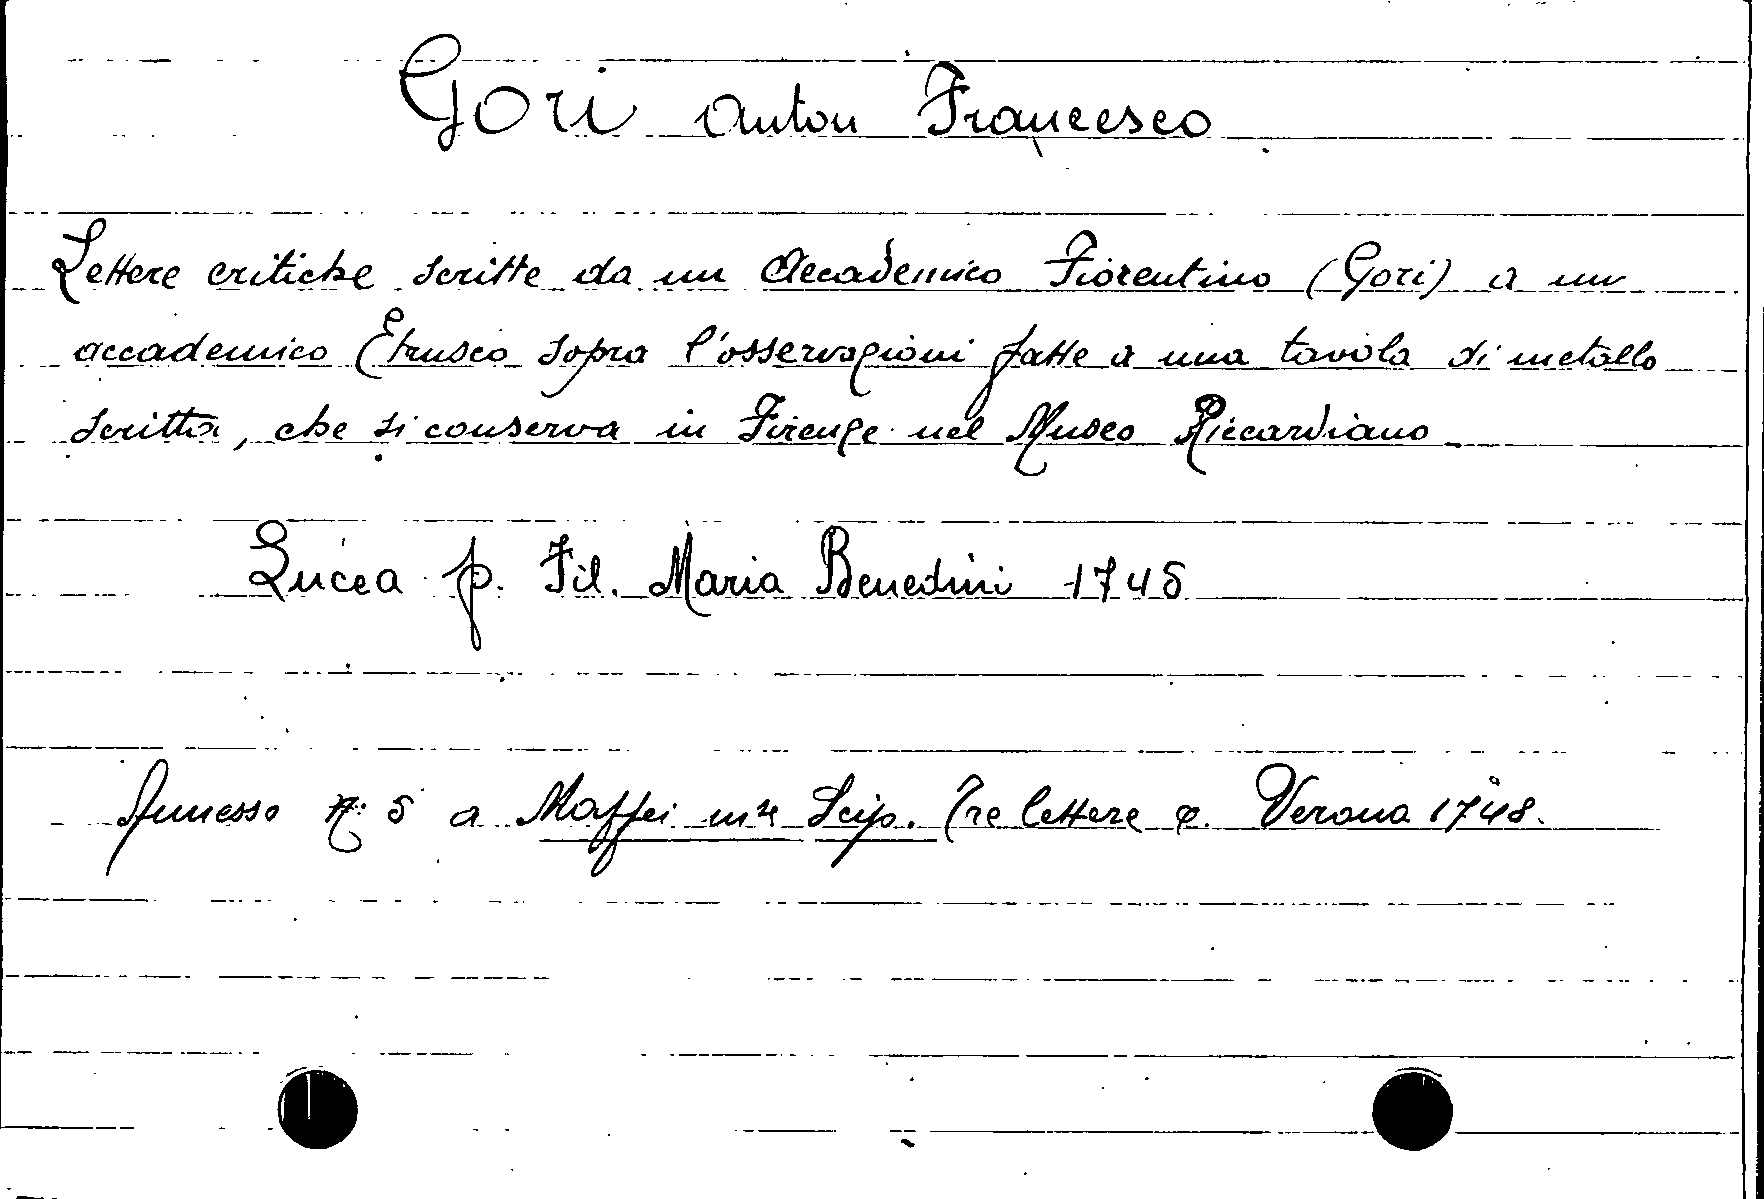 Gori Anton Francesco
Lettere critiche scritte da un Accademico Fiorentino (Gori) a un
accademico Etrusco sopra l'osservazioni fatte a una tavola di metallo
scritta, che si conserva in Firenze nel Museo Riccardiano
Lucca p. Fil. Maria Benedini 1745
Annesso n. 5 a Maffei Scip. Tre lettere Verona 1748.